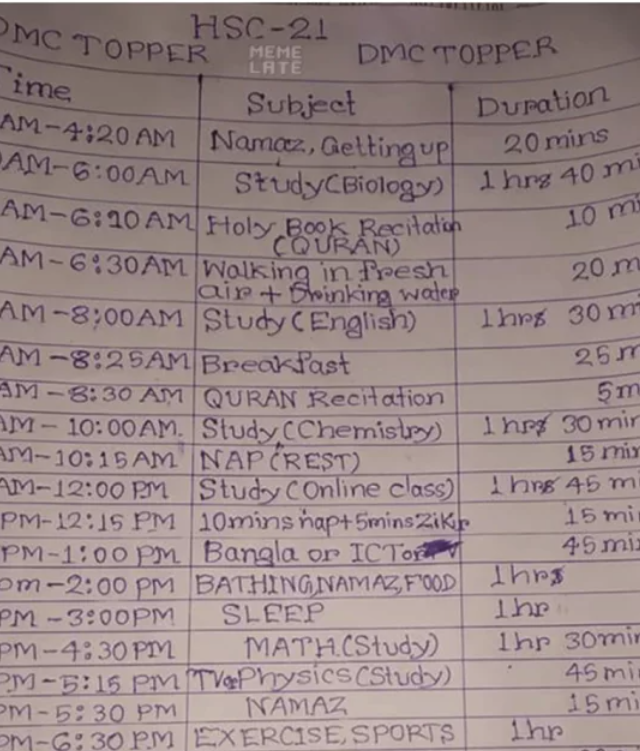 HSC-21
DMC TOPPER MEME LATE DMC TOPPER
Time Subject Duration
AM-4:20 AM Namaz, Getting up 20 mins
AM-6:00AM Study (Biology) 1 hrs 40 mi
AM-6:10 AM Holy Book Recitation (QURAN) 10 mi
AM-6:30AM Walking in fresh air + Drinking water 20 m
AM-8:00AM Study (English) 1hrs 30 m
AM-8:25AM Breakfast 25 m
AM-8:30 AM QURAN Recitation 5m
AM-10:00AM. Study (Chemistry) 1 hrs 30 min
AM-10:15AM NAP (REST) 15 min
AM-12:00 PM Study (Online class) 1 hrs 45 m
PM-12:15 PM 10mins nap+5mins Zikir 15 mi
PM-1:00 PM Bangla or ICT or 45 mi
pm-2:00 PM BATHING, NAMAZ, FOOD 1 hrs
PM-3:00PM SLEEP 1 hr
PM-4:30PM MATH (Study) 1hr 30min
PM-5:15 PM Physics (Study) 45 mi
PM-5:30 PM NAMAZ 15 mi
PM-6:30 PM EXERCISE, SPORTS 1hr